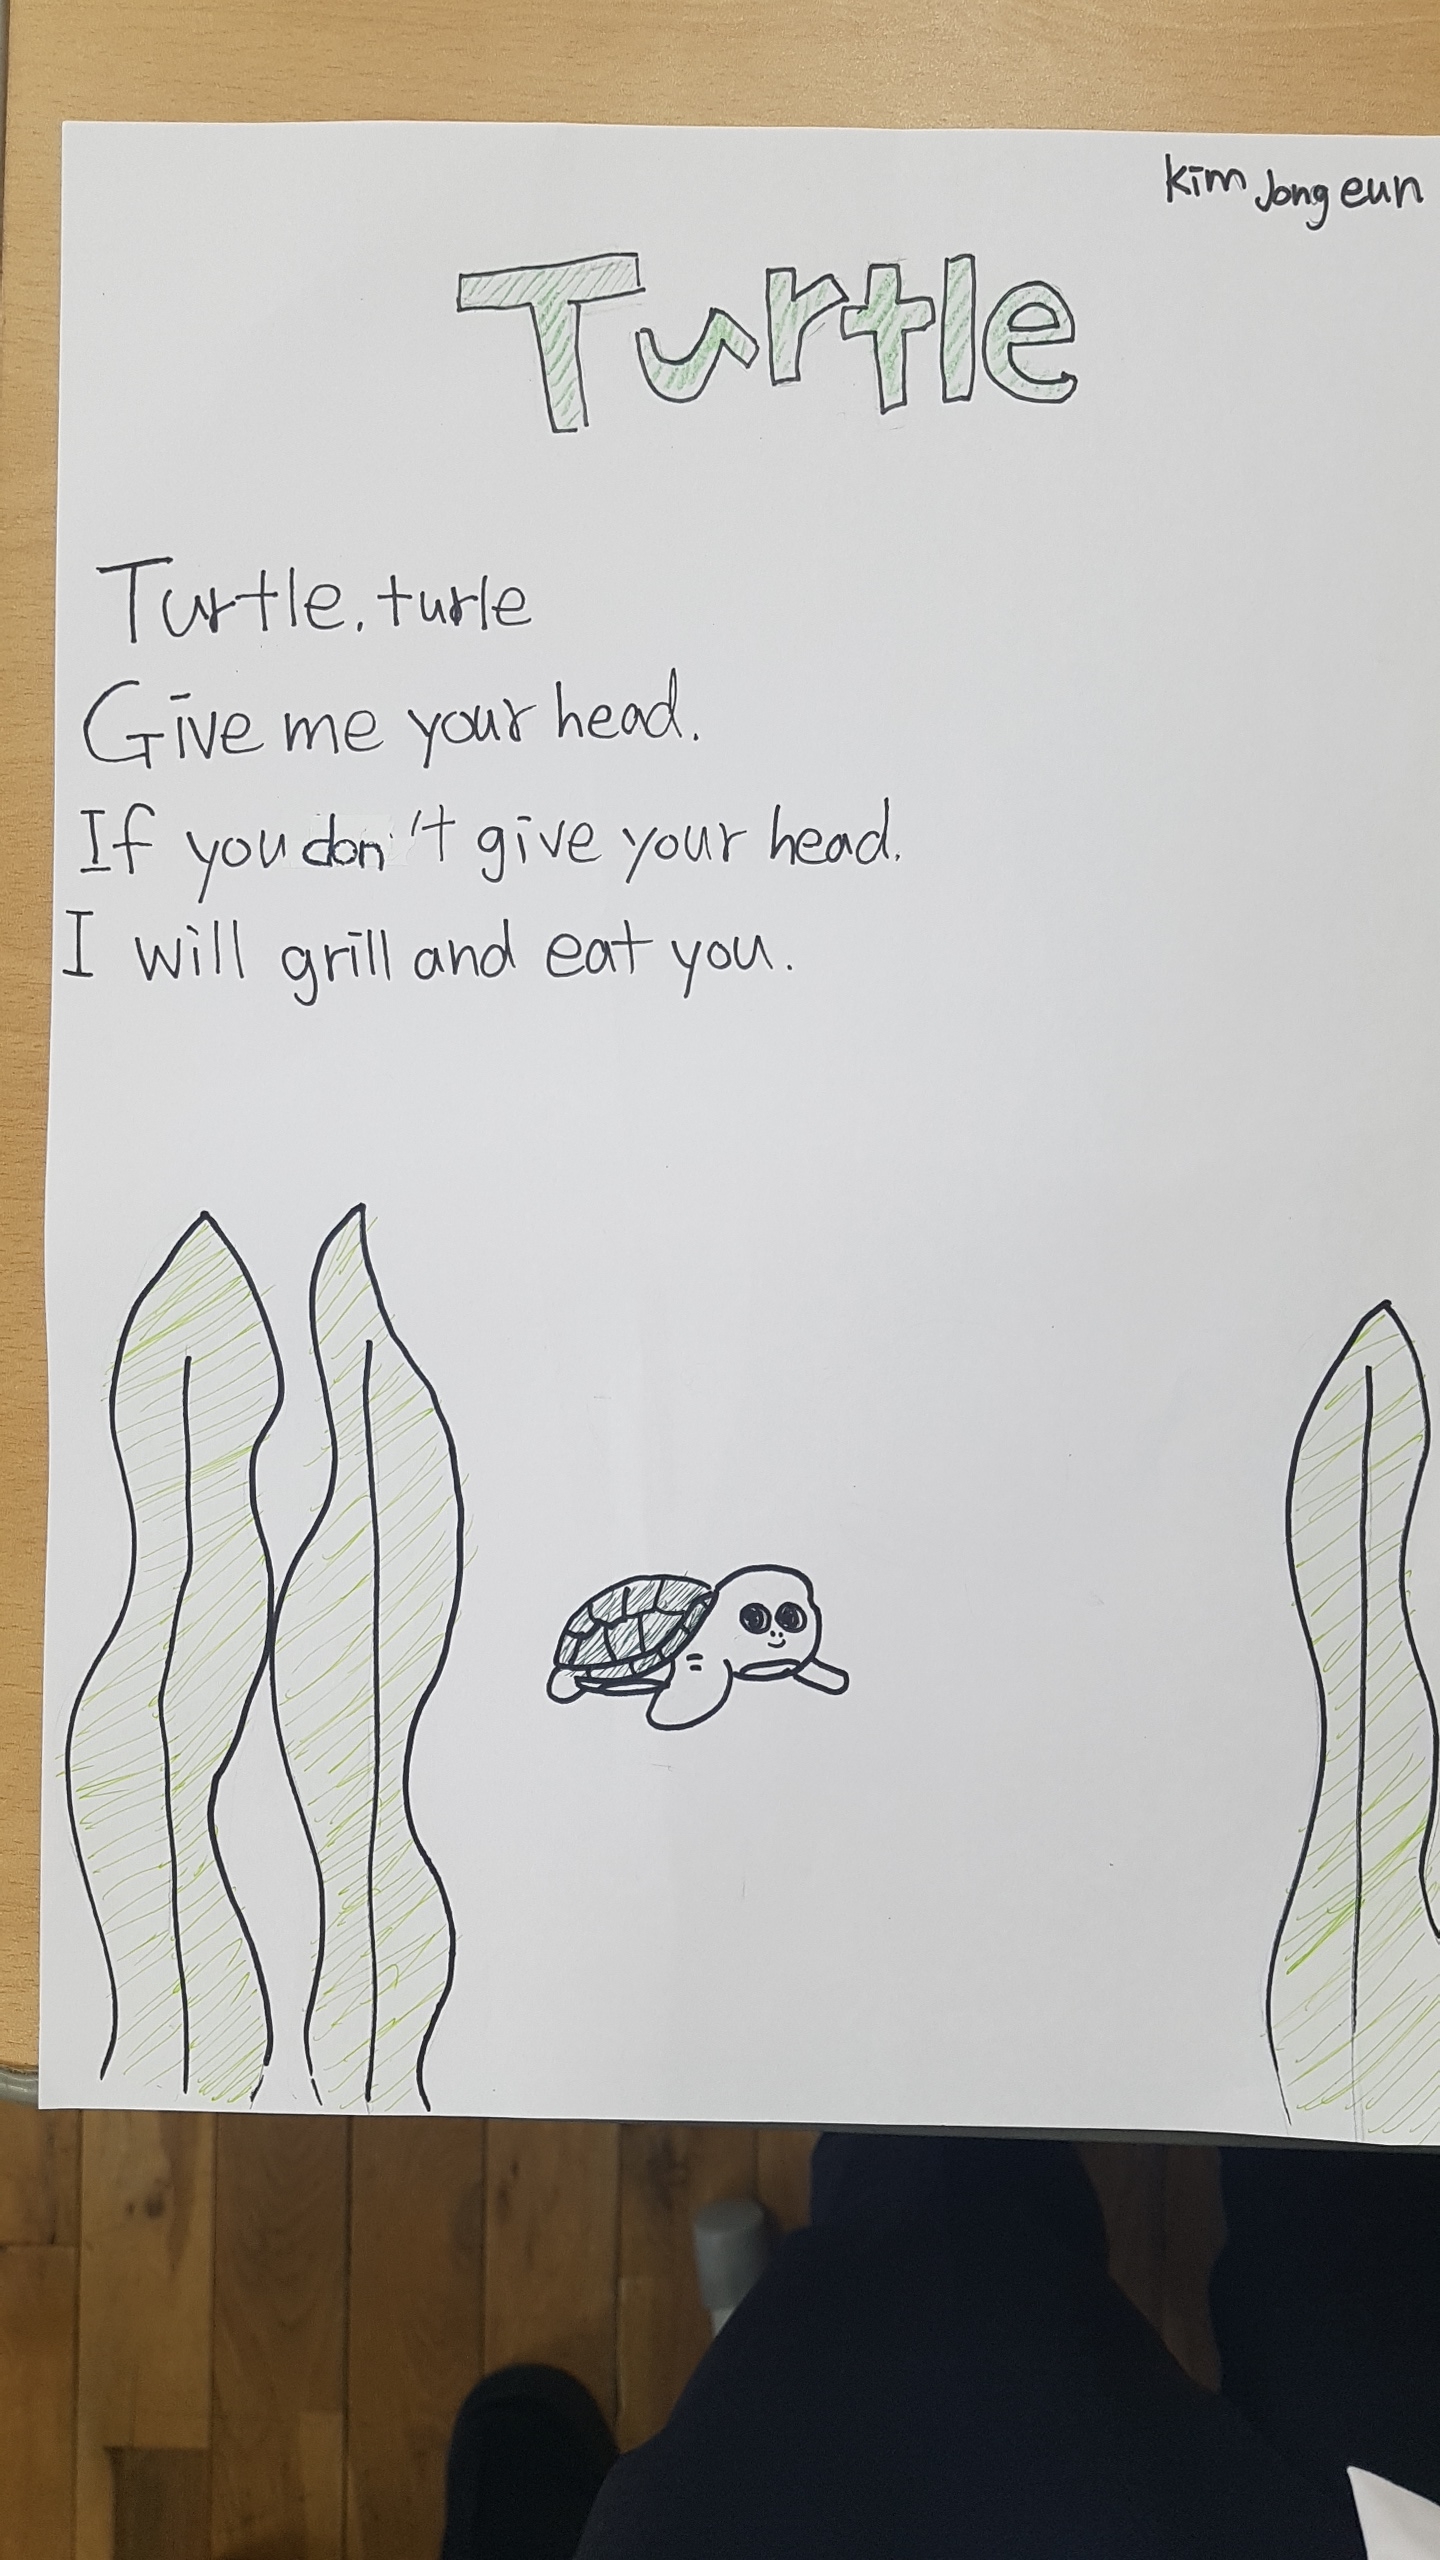 kim Jong eun
Turtle
Turtle. turle
Give me your head.
If you don't give your head.
I will grill and eat you.